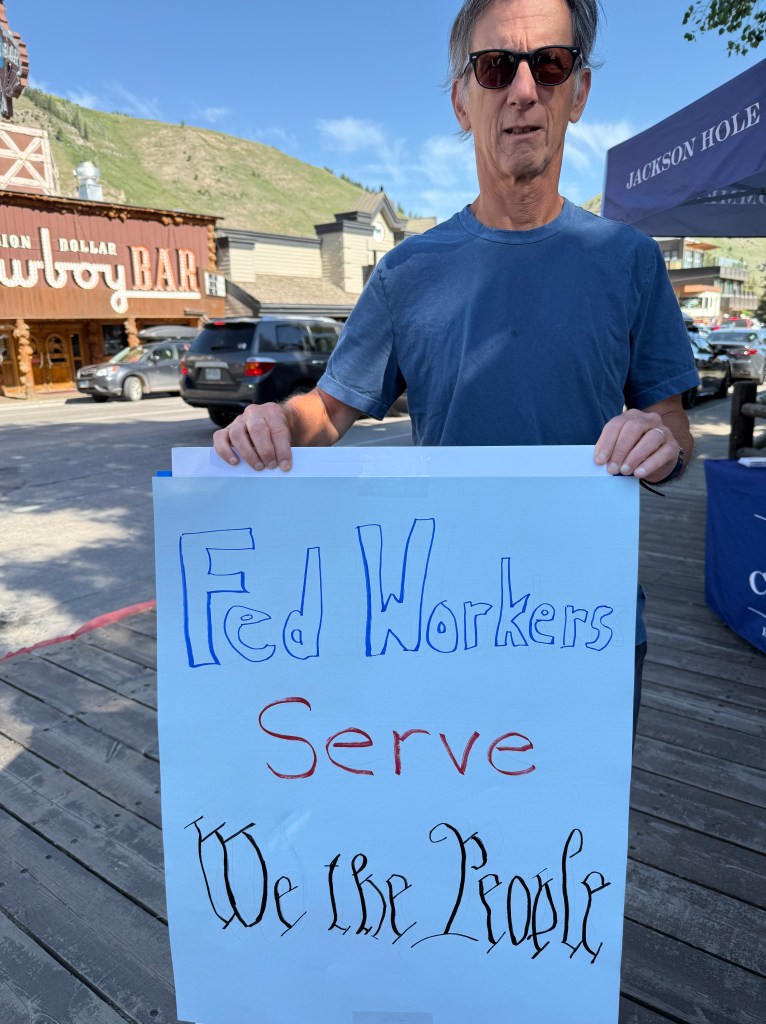 JACKSON HOLE
DOLLAR
Cowboy BAR
Fed Workers
Serve
We the People